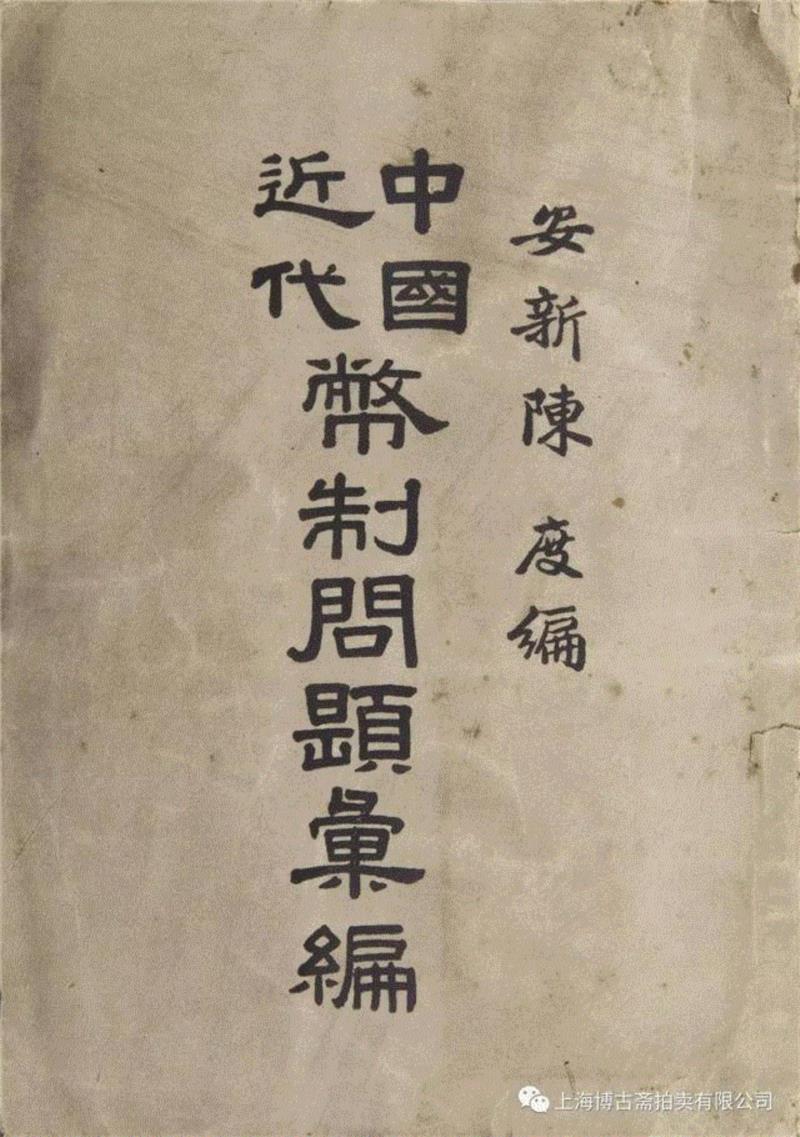 安新陳度編
中國近代幣制問題彙編
上海博古斋拍卖有限公司